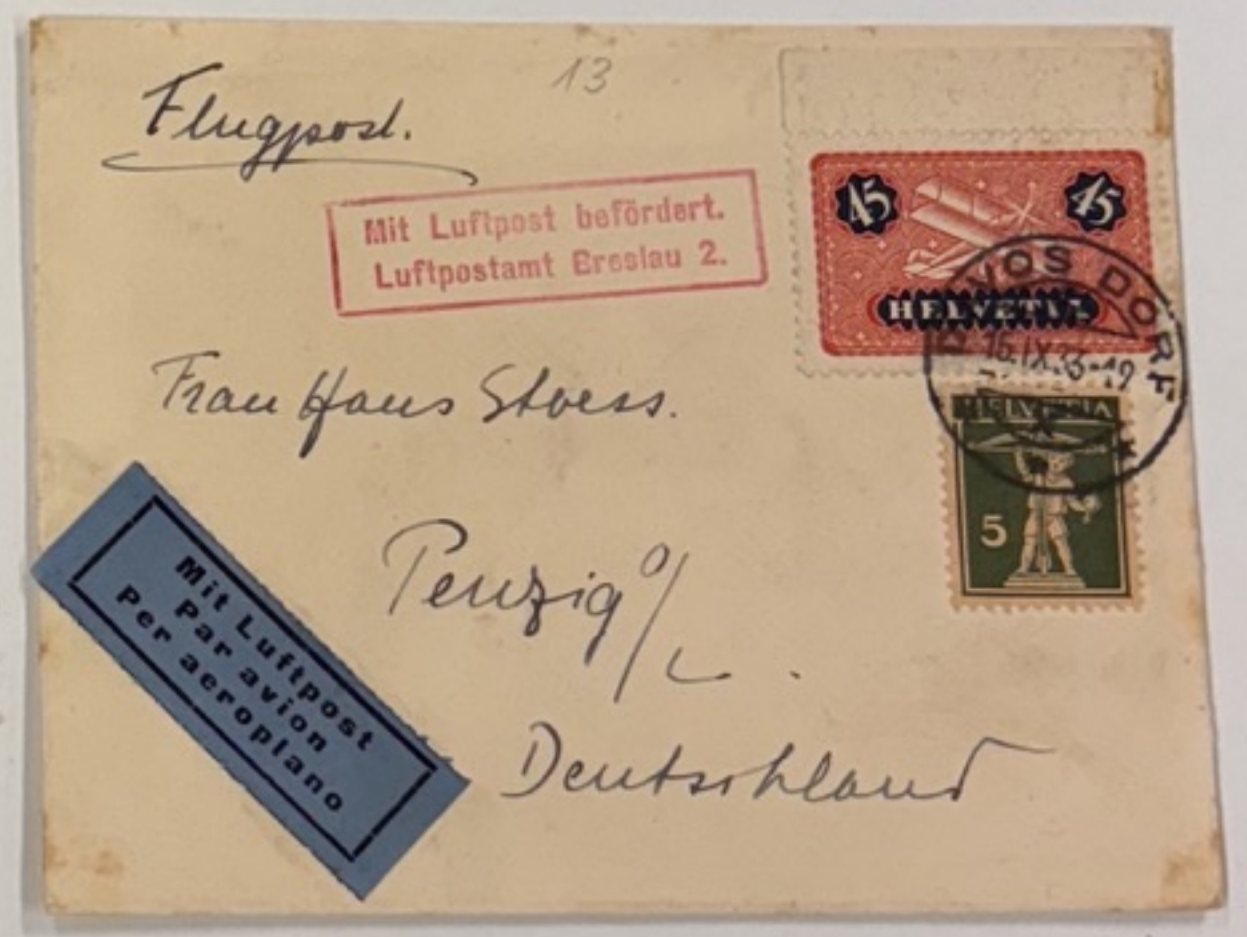 Flugpost.
13
Mit Luftpost befördert.
Luftpostamt Breslau 2.
45 45
HELVETIA
DAVOS DORF
15.IX.33-12
HELVETIA
5
Frau Hans Stoess.
Penzig O/L.
Deutschland
Mit Luftpost
Par avion
Per aeroplano